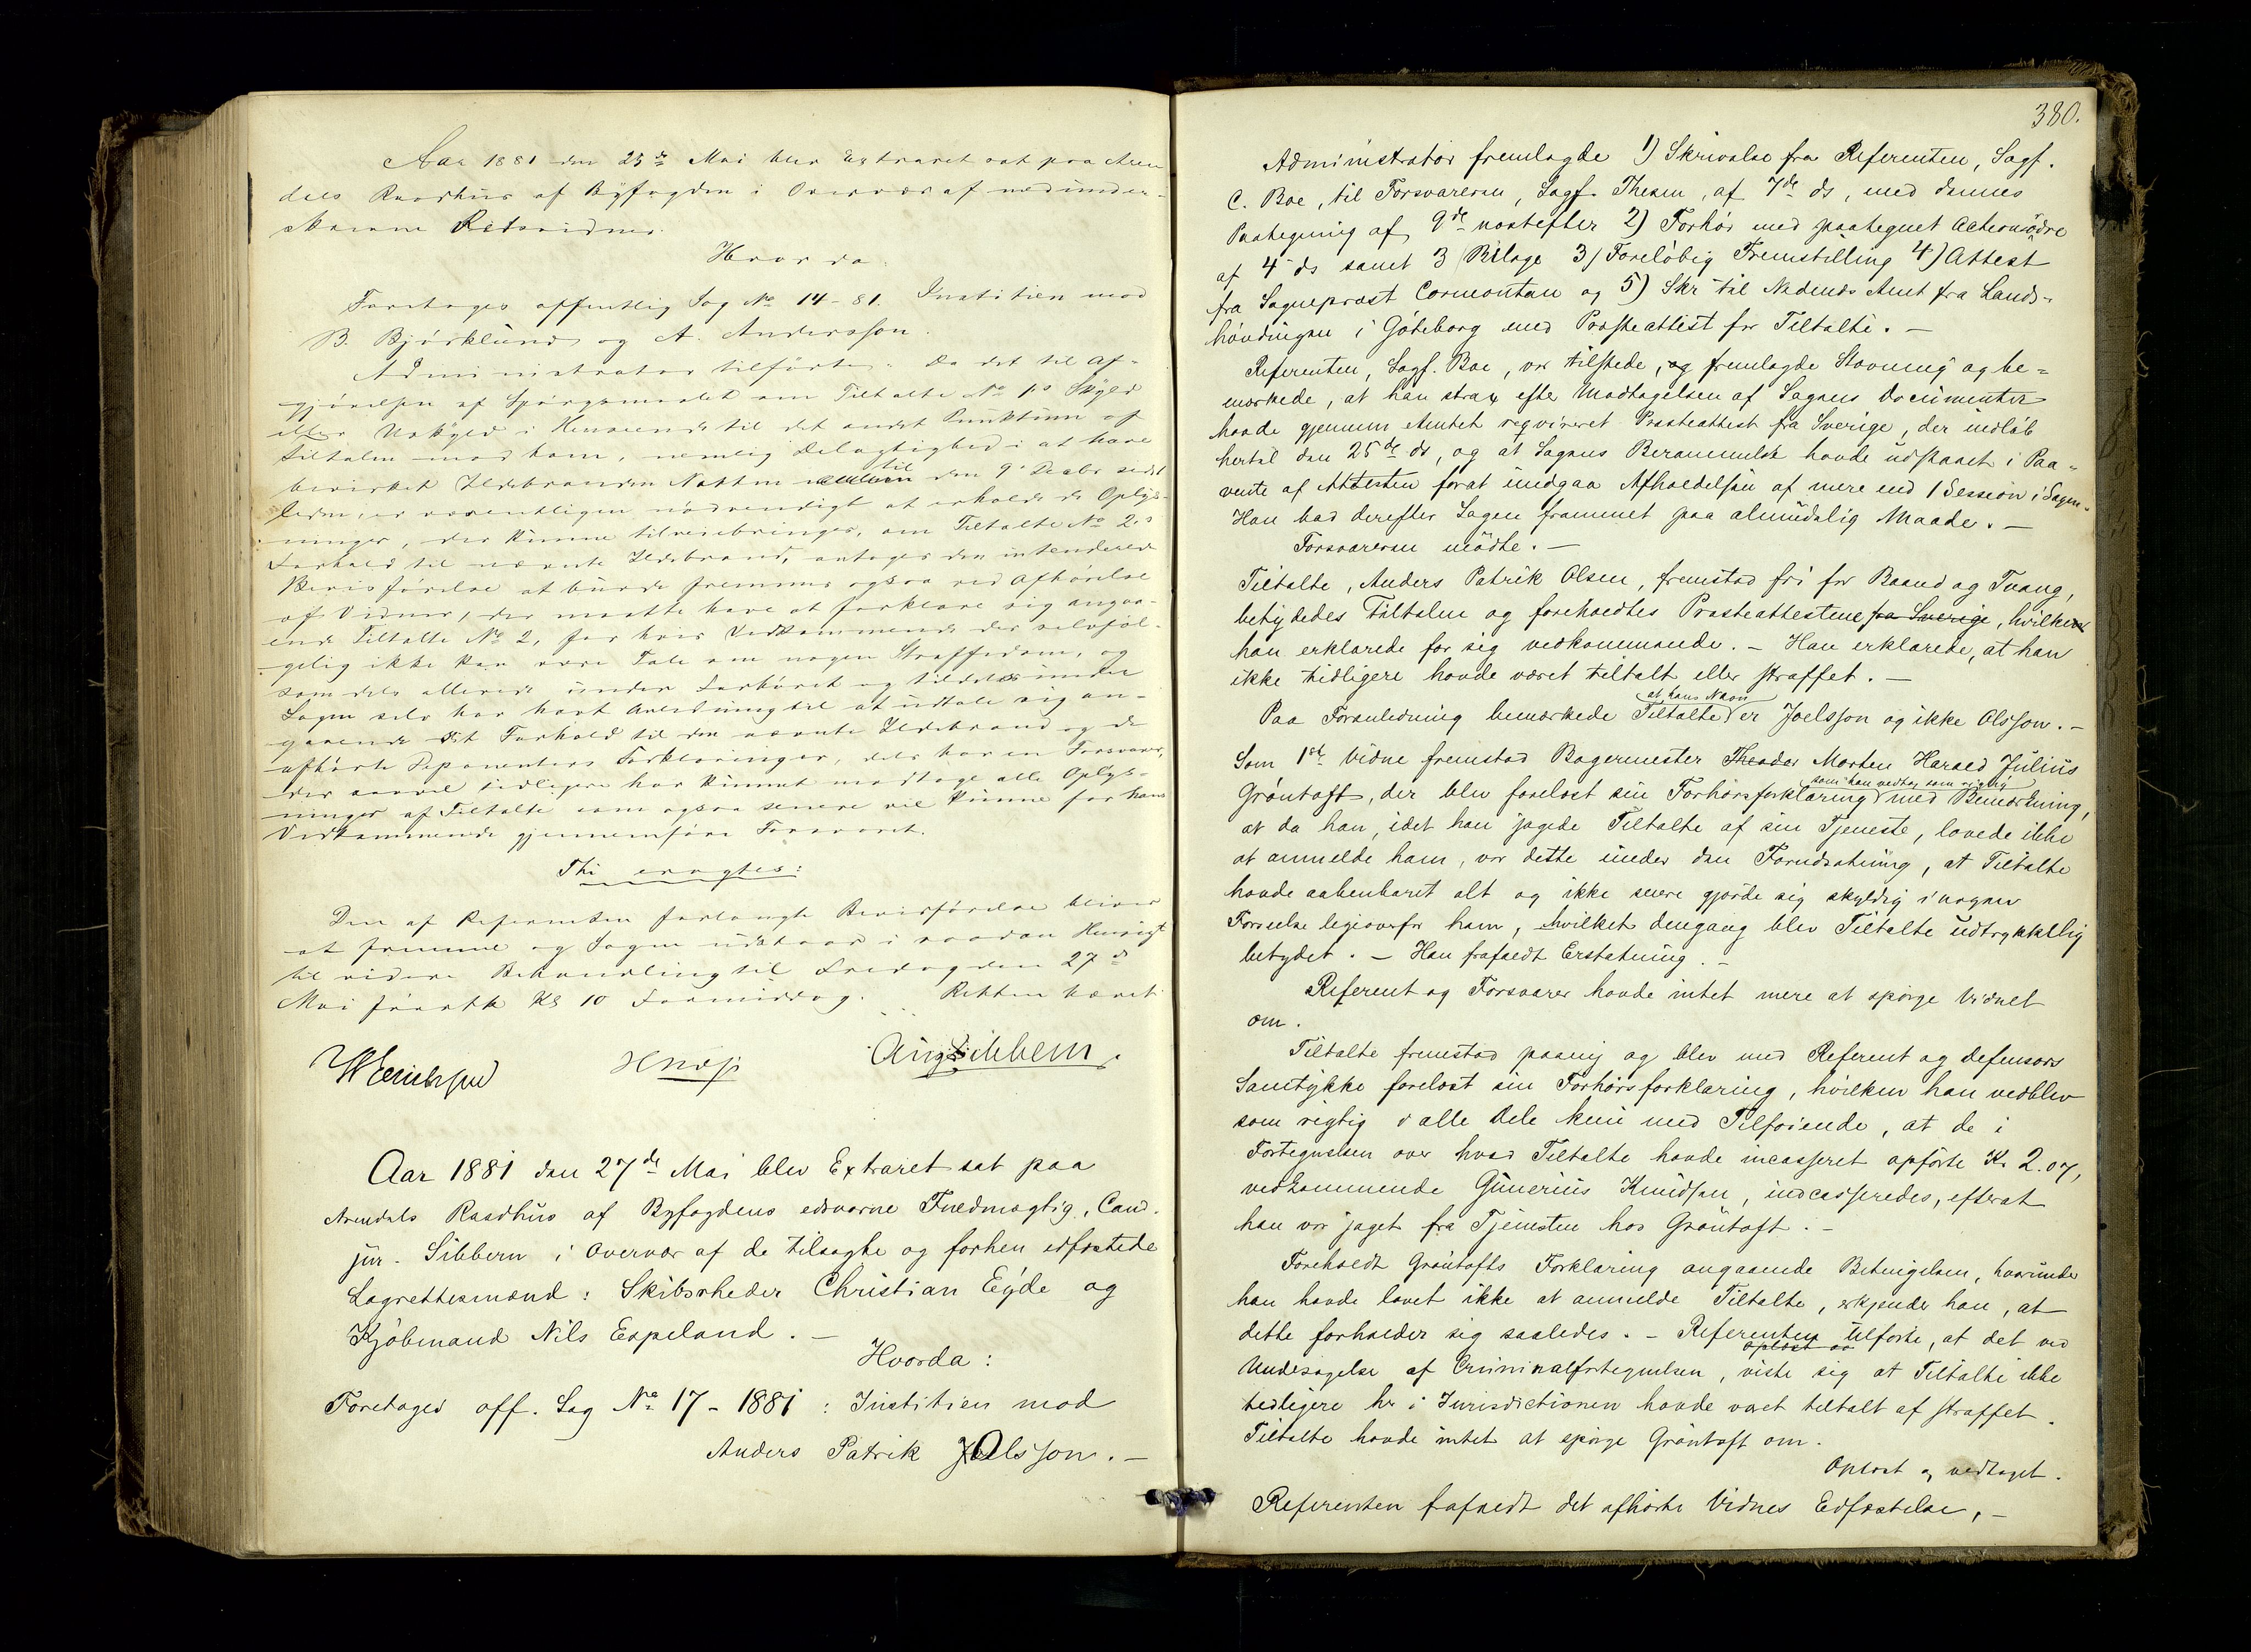 Aar 1881 den 25de Mai blev Extraret sat paa Aren
dals Raadhus af Byfogden i Overvær af nedunder-
skrevne Retsvidner.
Hvor da:
Foretoges offentlig Sag No 14-81. Justitien mod
B. Bjørklund og A. Andersson.
Administrator tilførte: Da det til Af-
gjørelsen af Spørgsmaalet om Tiltalte No 1's Skyld
eller Uskyld i Henseende til det andet Punktum af
Tiltalen mod ham, nemlig Delagtighed i at have
bevirket Ildebranden Natten til den 9de Decbr sidst
leden, er væsentligen nødvendigt at erholde de Oplys-
ninger, der kunne tilveiebringes, om Tiltalte No 2's
Forhold til nævnte Ildebrand, antages den intenderede
Bevisførelse at burde fremmes ogsaa ved Afhørelse
af Vidner, der maatte have at forklare sig angaa-
ende Tiltalte No 2, for hvis Vedkommende der selvføl-
gelig ikke kan være Tale om nogen Straffedom, og
som dels allerede under Forhøret og tildels under
Sagen selv har havt Anledning til at udtale sig an-
gaaende sit Forhold til den nævnte Ildebrand og de
afhørte Deponenters Forklaringer, dels har en Forsvarer,
der saavel tidligere har kunnet modtage alle Oplys-
ninger af Tiltalte som ogsaa senere vil kunne for hans
Vedkommende gjennemføre Forsvaret.
Thi eragtes:
Den af Referenten forlangte Bevisførelse bliver
at fremme og Sagen udstaar i saadan Henseende
til videre Behandling til Fredag den 27de
Mai førstk Kl 10 Formiddag. Retten hævet
Aug Sibbern.
Aar 1881 den 27de Mai blev Extraret sat paa
Arendals Raadhus af Byfogdens edsvorne Fuldmægtig, Cand.
jur. Sibbern i Overvær af de tilsagte og forhen edfæstede
Lagrettesmænd: Skibsrheder Christian Eyde og
Kjøbmand Nils Espeland. –
Hvorda:
Foretoges off. Sag No 17-1881: Justitien mod
Anders Patrik Olsson. –
380.
Administrator fremlagde 1) Skrivelse fra Referenten, Sagf.
C. Boe, til Forsvareren, Sagf. Thesen, af 7de ds, med dennes
Paategning af 9de næstefter 2) Forhør med paategnet Actionsordre
af 4de ds samt 3 Bilage 3) Foreløbig Fremstilling 4) Attest
fra Sognepræst Cormontan og 5) Skr til Nedenæs Amt fra Lands-
høvdingen i Göteborg med Præsteattest for Tiltalte. –
Referenten, Sagf. Boe, var tilstede, og fremlagde Stævning og be-
mærkede, at han strax efter Modtagelsen af Sagens Documenter
havde gjennem Amtet reqvireret Præsteattest fra Sverige, der indløb
hertil den 25de ds, og at Sagens Berammelse havde udstaaet i Paa-
vente af Attesten forat undgaa Afholdelsen af mere end 1 Session i Sagen.
Han bad derefter Sagen fremmet paa almindelig Maade. –
Forsvareren mødte. –
Tiltalte, Anders Patrik Olsen, fremstod fri for Baand og Tvang,
betydedes Tiltalen og foreholdtes Præsteattestene fra Sverige, hvilke
han erklærede for sig vedkommende. – Han erklærede, at han
ikke tidligere havde været tiltalt eller straffet. –
at hans Navn
Paa Foranledning bemærkede Tiltalte er Joelsson og ikke Olsson. –
Som 1ste Vidne fremstod Bagermester Theodor Morten Harald Julius
som han vedtog som rigtig
Grøntoft, der blev forelæst sin Forhørsforklaring med Bemærkning,
at da han, idet han jagede Tiltalte af sin Tjeneste, lovede ikke
at anmelde ham, var dette under den Forudsætning, at Tiltalte
havde aabenbaret alt og ikke senere gjorde sig skyldig i nogen
Forseelse ligeoverfor ham, hvilket dengang blev Tiltalte udtrykkelig
betydet. – Han frafaldt Erstatning. –
Referent og Forsvarer havde intet mere at spørge Vidnet
om.
Tiltalte fremstod paany og blev med Referent og Defensors
Samtykke forelæst sin Forhørsforklaring, hvilken han vedblev
som rigtig i alle Dele kun med Tilføiende, at de i
Fortegnelsen over hvad Tiltalte havde incasseret opførte Kr 2.07,
vedkommende Gunerius Knudsen, indcasseredes, efterat
han var jaget fra Tjenesten hos Grøntoft. –
Foreholdt Grøntofts Forklaring angaaende Betingelsen, hvorunder
han havde lovet ikke at anmelde Tiltalte, erkjender han, at
dette forholder sig saaledes. – Referenten tilførte, at det ved
Undersøgelse af Criminalfortegnelsen, viste sig at Tiltalte ikke
tidligere her i Jurisdictionen havde været tiltalt af straffet.
Tiltalte havde intet at spørge Grøntoft om.
Oplæst og vedtaget.
Referenten frafaldt det afhørte Vidnes Edfæstelse, –